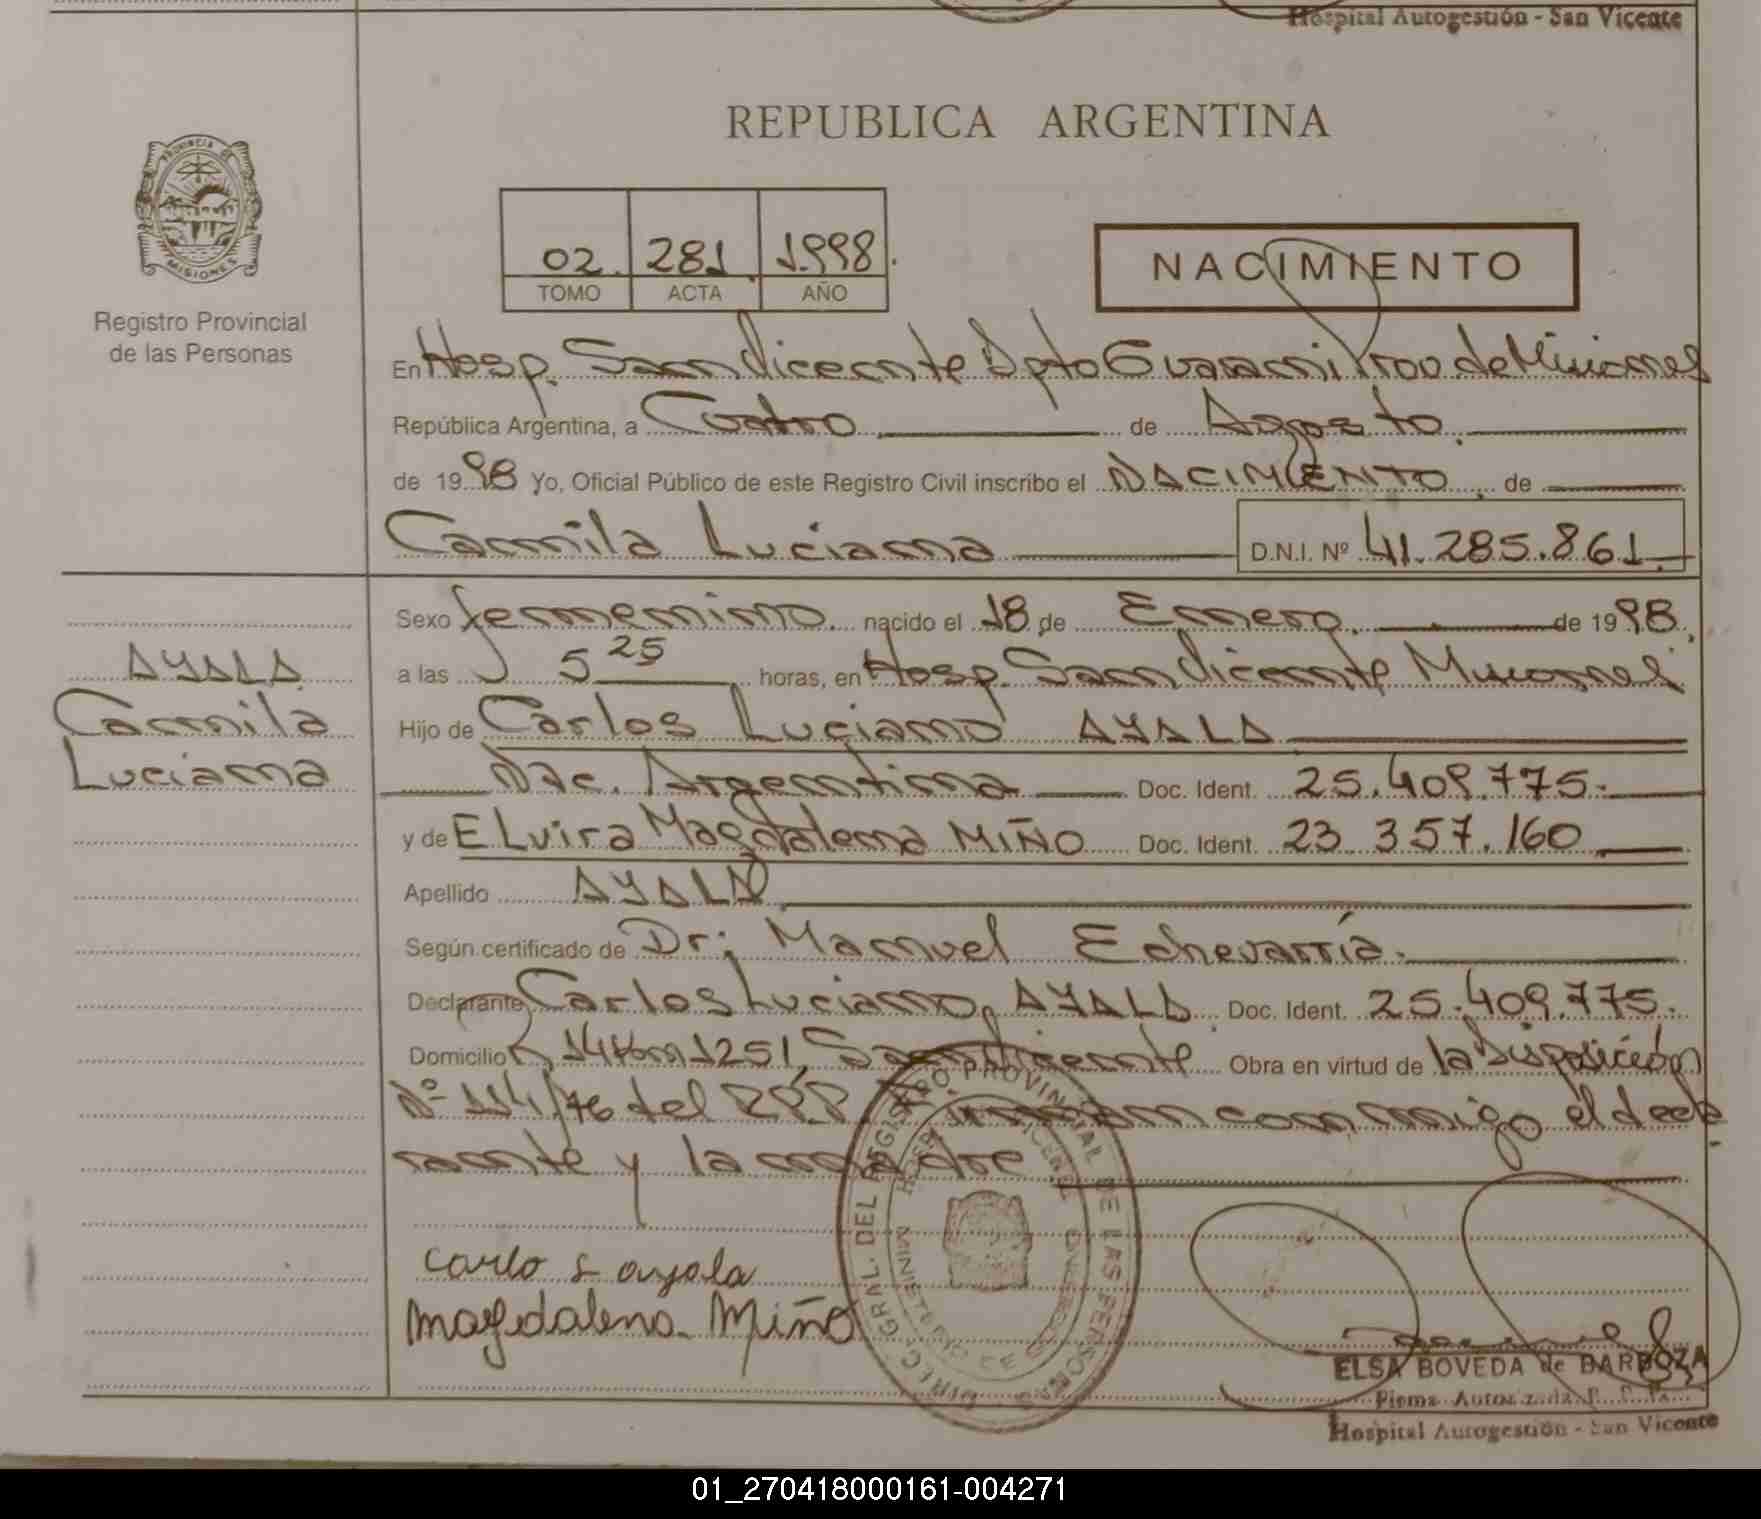 Hospital Autogestión - San Vicente
REPUBLICA ARGENTINA
PROVINCIA DE
MISIONES
Registro Provincial
de las Personas
02. 281. 1.998.
TOMO ACTA AÑO
NACIMIENTO
En Hosp. San Vicente Dpto Guarani Prov de Misiones
República Argentina, a Cuatro de Agosto.
de 1998 Yo, Oficial Público de este Registro Civil inscribo el NACIMIENTO. de
Camila Luciana D.N.I. Nº 41.285.861.
Sexo femenino. nacido el 18 de Enero. de 1998.
a las 5 25 horas, en Hosp. San Vicente Misiones
Hijo de Carlos Luciano AYALA
Nac. Argentina Doc. Ident. 25.409.775.
y de ELvira Magdalena MIÑO Doc. Ident. 23.357.160
Apellido AYALA
Según certificado de Dr; Manuel Echevarría.
Declarante Carlos Luciano, AYALA. Doc. Ident. 25.409.775.
Domicilio 14 Km 1251, San Vicente Obra en virtud de la Disposición
Nº 114/76 del RPP. Firman conmigo el decla
rante y la madre
AYALA
Camila
Luciana
carlo L ayala
Magdalena Miño
DIREC. GRAL. DEL REGISTRO PROVINCIAL DE LAS PERSONAS
MINISTERIO DE GOBIERNO
ELSA BOVEDA de BARBOZA
Firma Autorizada R. P. P.
Hospital Autogestión - San Vicente
01_270418000161-004271